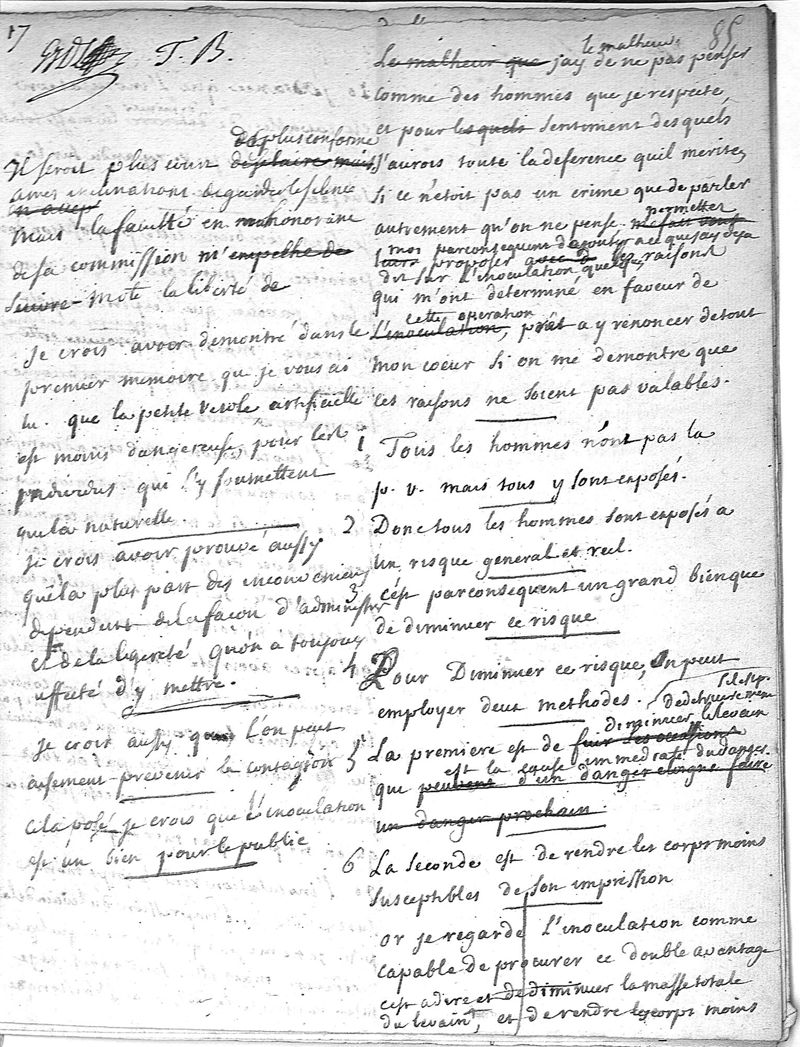 17
T. B.
de plus conforme
Il seroit plus court de plaire mais
a mes inclinations de garder le silence
mais la faculté en m'honorant
de sa commission m'empeche de
suivre m'ote la liberté de
je crois avoir demontré dans le
premier memoire que je vous ai
lu. que la petite verole artificielle
est moins dangereuse pour les
individus qui s'y soumettent
que la naturelle
je crois avoir prouvé aussy
que la plus part des inconveniens
dependent de la façon d'administrer
et de la legereté qu'on a toujours
affecté d'y mettre.
je crois aussy que l'on peut
aisement prevenir la contagion
cela posé je crois que l'inoculation
est un bien pour le public
85
le malheur
Le malheur que jay de ne pas penser
comme des hommes que je respecte
et pour les quels sentiment desquels
j'aurois toute la deference quil merite
si ce n'etoit pas un crime que de parler
autrement qu'on ne pense. me fait vous
permettez
moi par consequent d'ajouter a ce que jay deja
proposer avec les raisons
dit sur l'inoculation quelques
qui m'ont determiné en faveur de
cette operation
L'inoculation, prêt a y renoncer de tout
mon coeur si on me demontre que
ces raisons ne soient pas valables.
1 Tous les hommes n'ont pas la
p. v. mais tous y sont exposés.
2 Donc tous les hommes sont exposés a
un risque general et reel.
3 c'est par consequent un grand bien que
de diminuer ce risque
4 Pour Diminuer ce risque, on peut
employer deux methodes.
de detruire même
diminuer le levain
5 La premiere est de fuir les occasions
est la cause immediate du danger
que peuvent d'un danger eloigné faire
un danger prochain.
6 La seconde est de rendre les corps moins
susceptibles de son impression
or je regarde L'inoculation comme
capable de procurer ce double avantage
c'est a dire et de diminuer la masse totale
du levain, et de rendre les corps moins